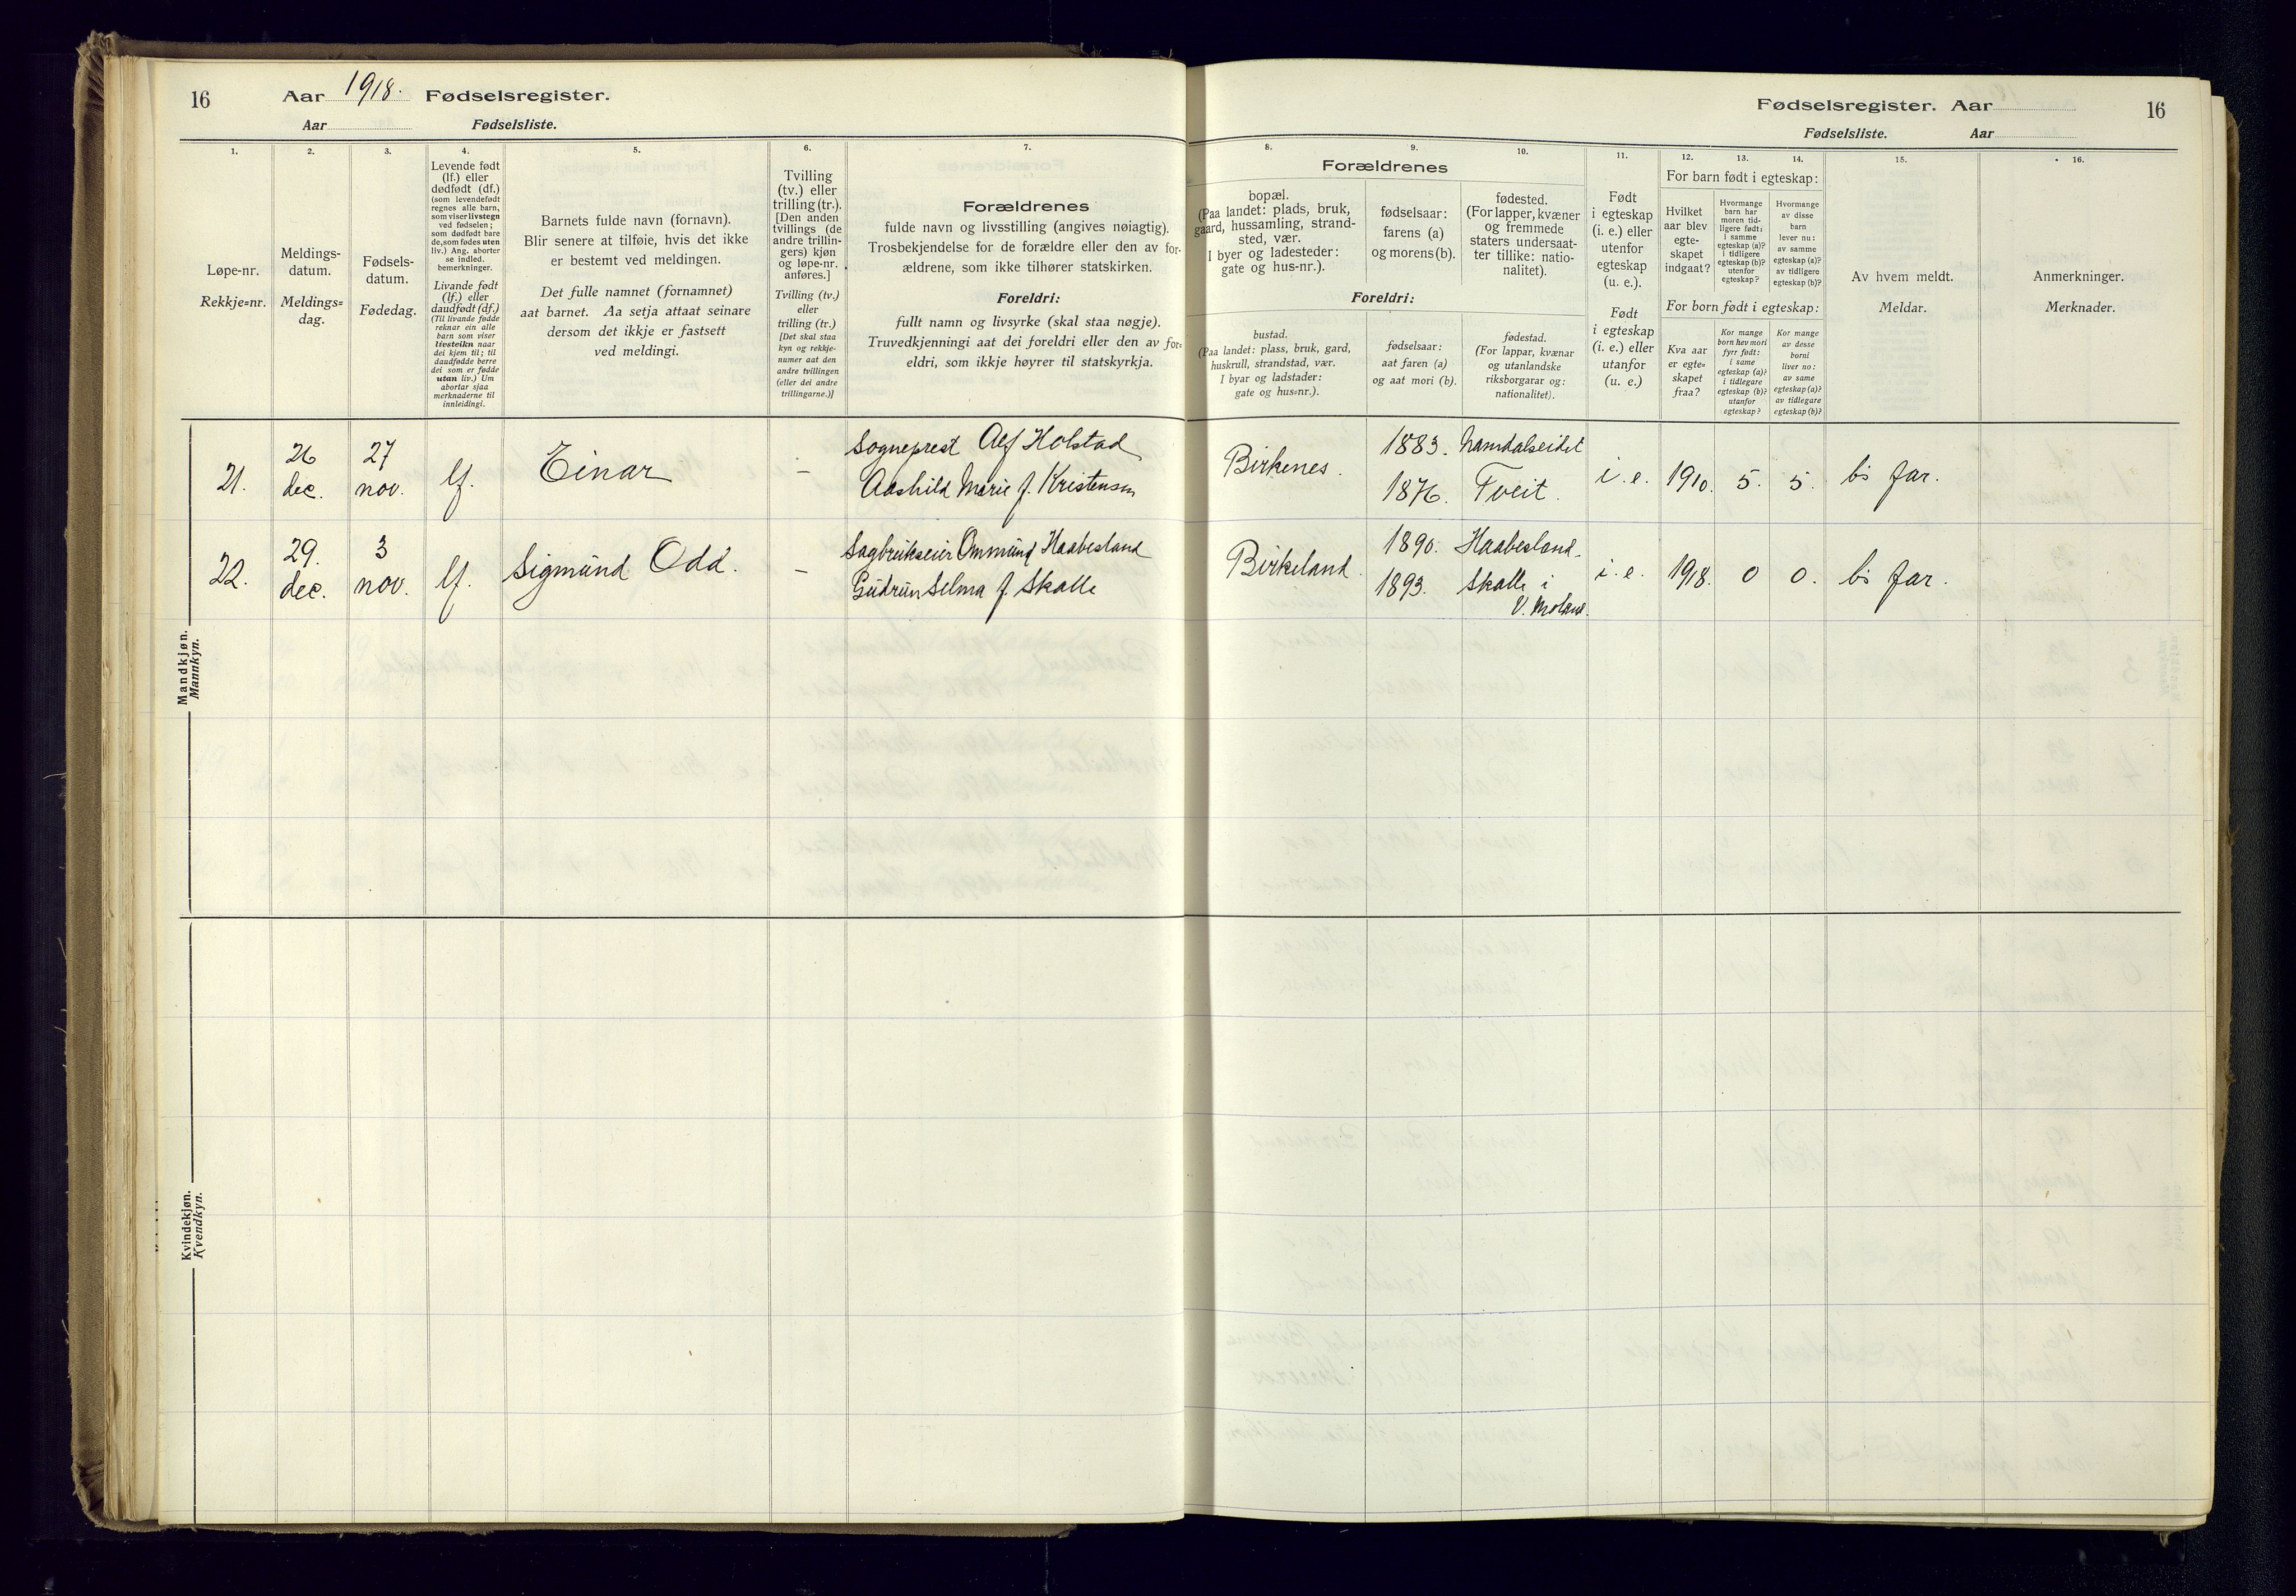 16
Aar 1918. Fødselsregister.
Aar Fødselsliste.
1.
2.
3.
4.
5.
6.
7.
Løpe-nr.
Rekkje=nr.
Meldings-
datum.
Meldings=
dag.
Fødsels-
datum.
Fødedag.
Levende født
(lf.) eller
dødfødt (df.)
(som levendefødt
regnes alle barn,
som viser livstegn
ved fødselen;
som dødfødt bare
de, som fødes uten
liv.) Ang. aborter
se indled.
bemerkninger.
Livande født
(lf.) eller
daudfødt (df.)
(Til livande fødde
reknar ein alle
barn som viser
livsteikn naar
dei kjem til; til
daudfødde berre
dei som er fødde
utan liv.) Um
abortar sjaa
merknaderne til
innleidingi.
Barnets fulde navn (fornavn).
Blir senere at tilføie, hvis det ikke
er bestemt ved meldingen.
Det fulle namnet (fornamnet)
aat barnet. Aa setja attaat seinare
dersom det ikkje er fastsett
ved meldingi.
Tvilling
(tv.) eller
trilling (tr.).
[Den anden
tvillings (de
andre trillin-
gers) kjøn
og løpe-nr.
anføres.]
Tvilling (tv.)
eller
trilling (tr.)
[Det skal staa
kyn og rekkje-
numer aat den
andre tvillingen
(eller dei andre
trillingarne.)]
Forældrenes
fulde navn og livsstilling (angives nøiagtig).
Trosbekjendelse for de forældre eller den av for-
ældrene, som ikke tilhører statskirken.
Foreldri:
fullt namn og livsyrke (skal staa nøgje).
Truvedkjenningi aat dei foreldri eller den av for=
eldri, som ikkje høyrer til statskyrkja.
Fødselsregister. Aar
16
Fødselsliste. Aar
8.
9.
10.
11.
12.
13.
14.
15.
16.
Forældrenes
bopæl.
(Paa landet: plads, bruk,
gaard, hussamling, strand-
sted, vær.
I byer og ladesteder:
gate og hus-nr.).
fødselsaar:
farens (a)
og morens (b).
fødested.
(For lapper, kvæner
og fremmede
staters undersaat-
ter tillike: natio-
nalitet).
Foreldri:
bustad.
(Paa landet: plass, bruk, gard,
huskrull, strandstad, vær.
I byar og ladstader:
gate og hus=nr.).
fødselsaar:
aat faren (a)
og aat mori (b).
fødestad.
(For lappar, kvænar
og utanlandske
riksborgarar og:
nationalitet).
Født
i egteskap
(i. e.) eller
utenfor
egteskap
(u. e.).
Født
i egteskap
(i. e.) eller
utanfor
(u. e.)
For barn født i egteskap:
Hvilket
aar blev
egte-
skapet
indgaat?
Hvormange
barn har
moren tid-
ligere født:
i samme
egteskap (a)?
i tidligere
egteskap (b)?
utenfor
egteskap?
Hvormange
av disse
barn
lever nu:
av samme
egteskap (a)?
av tidligere
egteskap (b)?
For born født i egteskap:
Kva aar
er egte=
skapet
fraa?
Kor mange
born hev mori
fyrr født:
i same
egteskap (a)?
i tidlegare
egteskap (b)?
utanfor
egteskap?
Kor mange
av desse
borni
liver no:
av same
egteskap (a)?
av tidlegare
egteskap (b)?
Av hvem meldt.
Meldar.
Anmerkninger.
Merknader.
Mandkjøn.
Mannkyn.
21. 26 dec. 27 nov. lf. Einar –
Sogneprest Alf Holstad
Aashild Marie f. Kristensen
Birkenes. 1883. Namdalseidet
1876. Tveit.
i. e. 1910. 5. 5. bs far.
22. 29. dec. 3 nov. lf. Sigmund Odd. –
Sagbrukseier Ommund Haabesland
Gudrun Selma f. Skalle
Birkeland. 1890. Haabesland.
1893. Skalle i
V. Moland.
i. e. 1918. 0 0. bs far.
Kvindekjøn.
Kvendkyn.